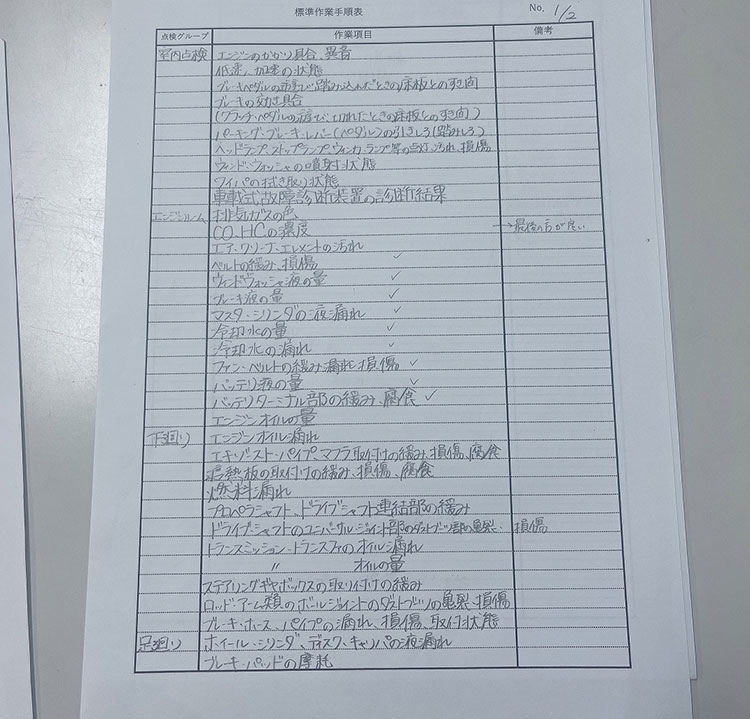 標準作業手順表
No. 1/2
点検グループ 作業項目 備考
室内点検 エンジンのかかり具合、異音
低速、加速の状態
ブレーキペダルの遊び、踏み込んだときの床板とのすき間
ブレーキの効き具合
(クラッチ・ペダルの遊び、切れたときの床板とのすき間)
パーキング・ブレーキ・レバー(ペダル)の引きしろ(踏みしろ)
ヘッドランプ、ストップランプ、ウィンカ・ランプ等の点灯、汚れ、損傷
ウィンド・ウォッシャの噴射状態
ワイパの拭き取り状態
車載式故障診断装置の診断結果
エンジンルーム 排気ガスの色
CO、HCの濃度 →最後の方が良い
エア・クリーナ・エレメントの汚れ
ベルトの緩み、損傷 ✓
ウィンドウォッシャ液の量 ✓
ブレーキ液の量 ✓
マスタ・シリンダの液漏れ ✓
冷却水の量 ✓
冷却水の漏れ ✓
ファン・ベルトの緩み漏れ、損傷 ✓
バッテリ液の量 ✓
バッテリターミナル部の緩み、腐食 ✓
エンジンオイルの量
下回り エンジンオイル漏れ
エキゾースト・パイプ、マフラ取付けの緩み、損傷、腐食
遮熱板の取付けの緩み、損傷、腐食
燃料漏れ
プロペラシャフト、ドライブシャフト連結部の緩み
ドライブ・シャフトのユニバーサル・ジョイント部のダストブーツ部の亀裂・損傷
トランスミッション・トランスファのオイル漏れ
〃 オイルの量
ステアリングギヤボックスの取り付けの緩み
ロッド・アーム類のボールジョイントのダストブーツの亀裂、損傷
ブレーキ・ホース、パイプの漏れ、損傷、取付状態
足廻り ホイール・シリンダ、ディスク・キャリパの液漏れ
ブレーキ・パッドの摩耗